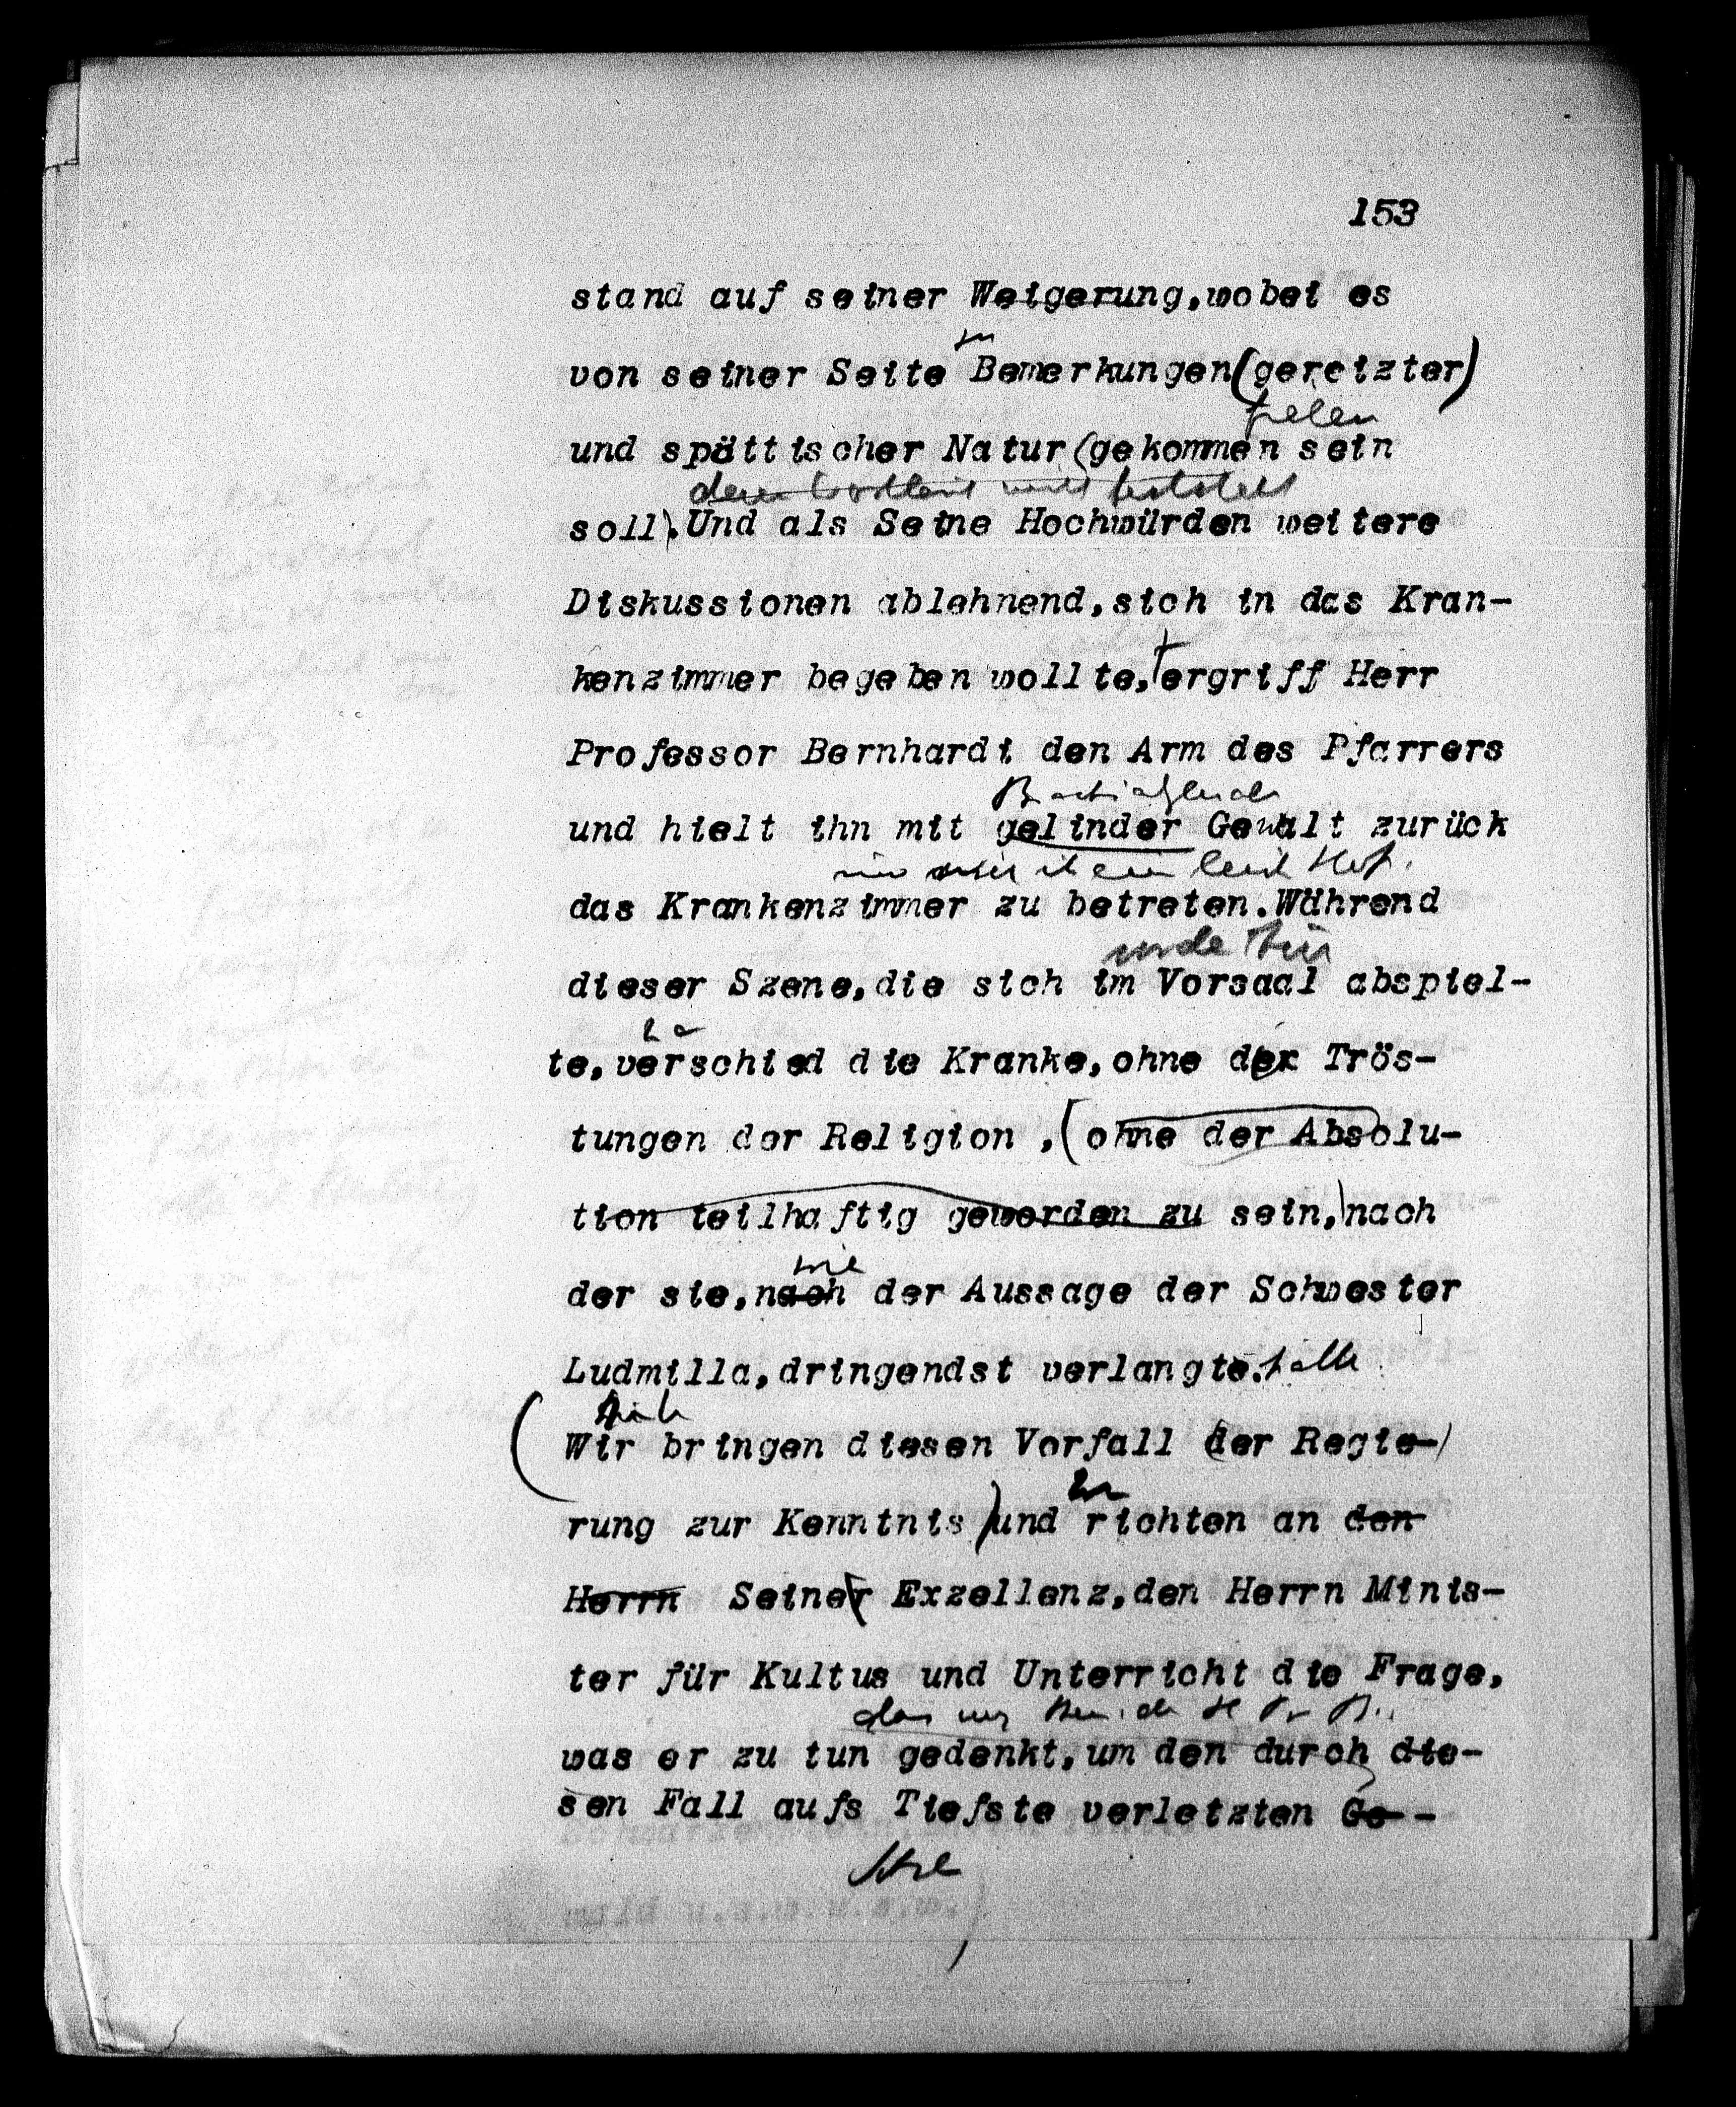 153
stand auf seiner Weigerung,wobei es
zu
von seiner Seite Bemerkungen(gereizter)
fielen
und spöttischer Natur(gekommen sein
soll).Und als Seine Hochwürden weitere
Diskussionen ablehnend,sich in das Kran-
kenzimmer begeben wollte,ergriff Herr
Professor Bernhardi den Arm des Pfarrers
und hielt ihn mit gelinder Gewalt zurück
das Krankenzimmer zu betreten.Während
dieser Szene,die sich im Vorsaal abspiel-
te,verschied die Kranke,ohne der Trös-
tungen der Religion ,(ohne der Absolu-
tion teilhaftig geworden zu sein,)nach
wie
der sie,nach der Aussage der Schwester
Ludmilla,dringendst verlangte. hatte
(Wir bringen diesen Vorfall der Regie-
rung zur Kenntnis)und richten an den
Herrn Seiner Exzellenz,den Herrn Minis-
ter für Kultus und Unterricht die Frage,
was er zu tun gedenkt,um den durch die-
sen Fall aufs Tiefste verletzten Ge--